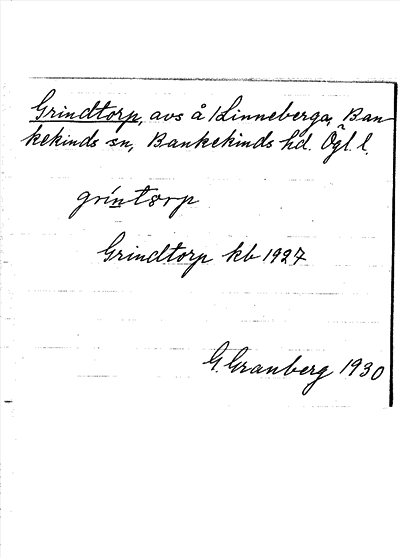 Grindtorp, avs å Linneberga, Ban-
kekinds sn, Bankekinds hd. Ögl. l.
grintorp
Grindtorp kb 1927
G. Granberg 1930